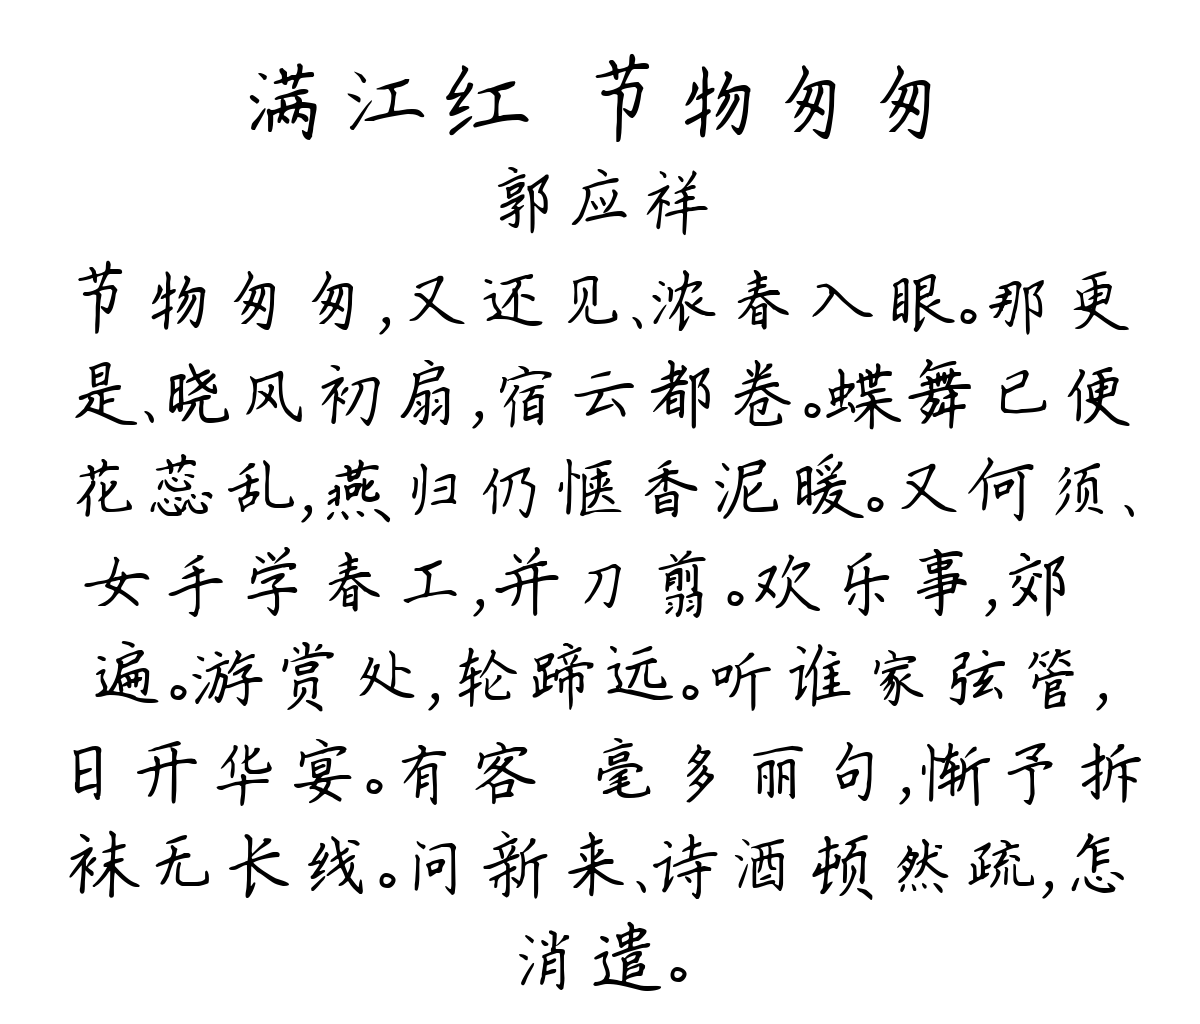 满江红 节物匆匆
郭应祥
节物匆匆,又还见、浓春入眼。那更
是、晓风初扇,宿云都卷。蝶舞已便
花蕊乱,燕归仍惬香泥暖。又何须、
女手学春工,并刀剪。欢乐事,郊
遍。游赏处,轮蹄远。听谁家弦管,
日开华宴。有客 毫多丽句,惭予拆
袜无长线。问新来、诗酒顿然疏,怎
消遣。